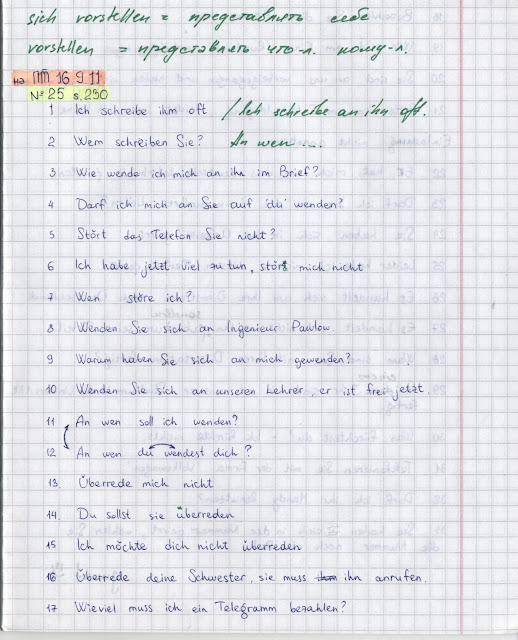 sich vorstellen = представлять себе
vorstellen = представлять что-л. кому-л.
на ПТ 16 9 11
№ 25 s. 290
1 Ich schreibe ihm oft / Ich schreibe an ihn oft.
2 Wem schreiben Sie? An wen ...
3 Wie wende ich mich an ihn im Brief?
4 Darf ich mich an Sie auf 'du' wenden?
5 Stört das Telefon Sie nicht?
6 Ich habe jetzt viel zu tun, stör mich nicht
7 Wen störe ich?
8 Wenden Sie sich an Ingenieur Pawlow.
9 Warum haben Sie sich an mich gewenden?
10 Wenden Sie sich an unseren Lehrer, er ist frei jetzt.
11 An wen soll ich wenden?
12 An wen du wendest dich?
13. Überrede mich nicht
14. Du sollst sie überreden
15 Ich möchte dich nicht überreden
16 Überrede deine Schwester, sie muss ihn anrufen.
17 Wieviel muss ich ein Telegramm bezahlen?